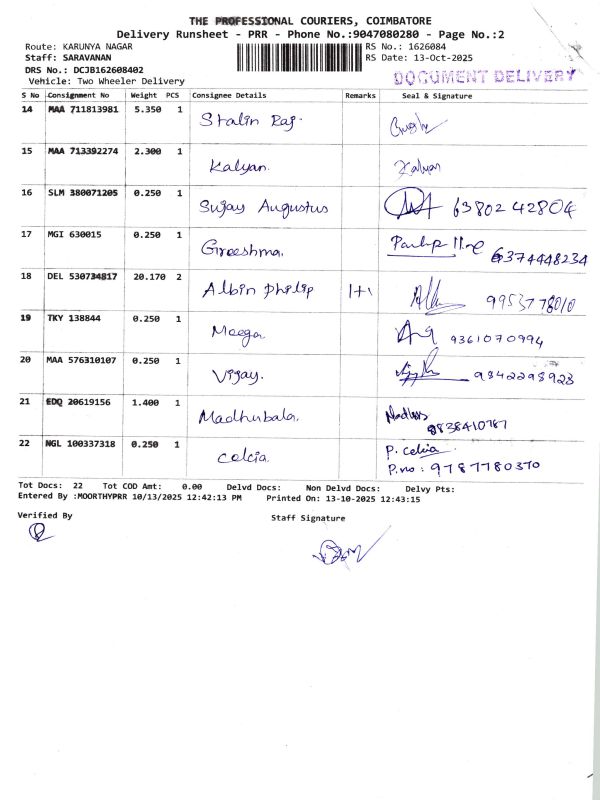 THE PROFESSIONAL COURIERS, COIMBATORE
Delivery Runsheet - PRR - Phone No.:9047080280 - Page No.:2
Route: KARUNYA NAGAR
RS No.: 1626084
Staff: SARAVANAN
RS Date: 13-Oct-2025
DRS No.: DCJB162608402
DOCUMENT DELIVERY
Vehicle: Two Wheeler Delivery
S No Consignment No Weight PCS Consignee Details Remarks Seal & Signature
14 MAA 711813981 5.350 1 Stalin Raj.
15 MAA 713392274 2.300 1 Kalyan. Kalyan
16 SLM 380071205 0.250 1 Sujay Augustus 6380242804
17 MGI 630015 0.250 1 Greeshma. 6374448234
18 DEL 530734817 20.170 2 Albin philip 1+1 9953778010
19 TKY 138844 0.250 1 Meega 9361070994
20 MAA 576310107 0.250 1 Vijay. 9342298923
21 EDQ 20619156 1.400 1 Madhubala.
22 NGL 100337318 0.250 1 Celcia. P. Celcia
P.no: 9787780370
Tot Docs: 22 Tot COD Amt: 0.00 Delvd Docs: Non Delvd Docs: Delvy Pts:
Entered By :MOORTHYPRR 10/13/2025 12:42:13 PM Printed On: 13-10-2025 12:43:15
Verified By
Staff Signature